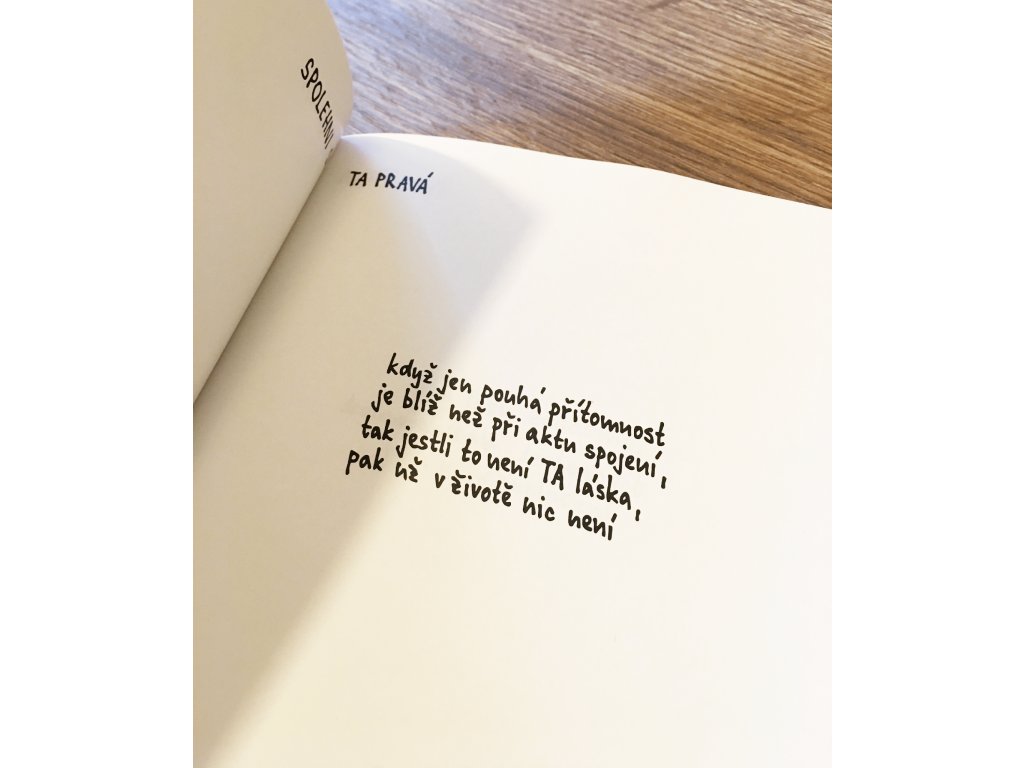 SPOLEHNI
TA PRAVÁ
když jen pouhá přítomnost
je blíž než při aktu spojení,
tak jestli to není TA láska,
pak už v životě nic není